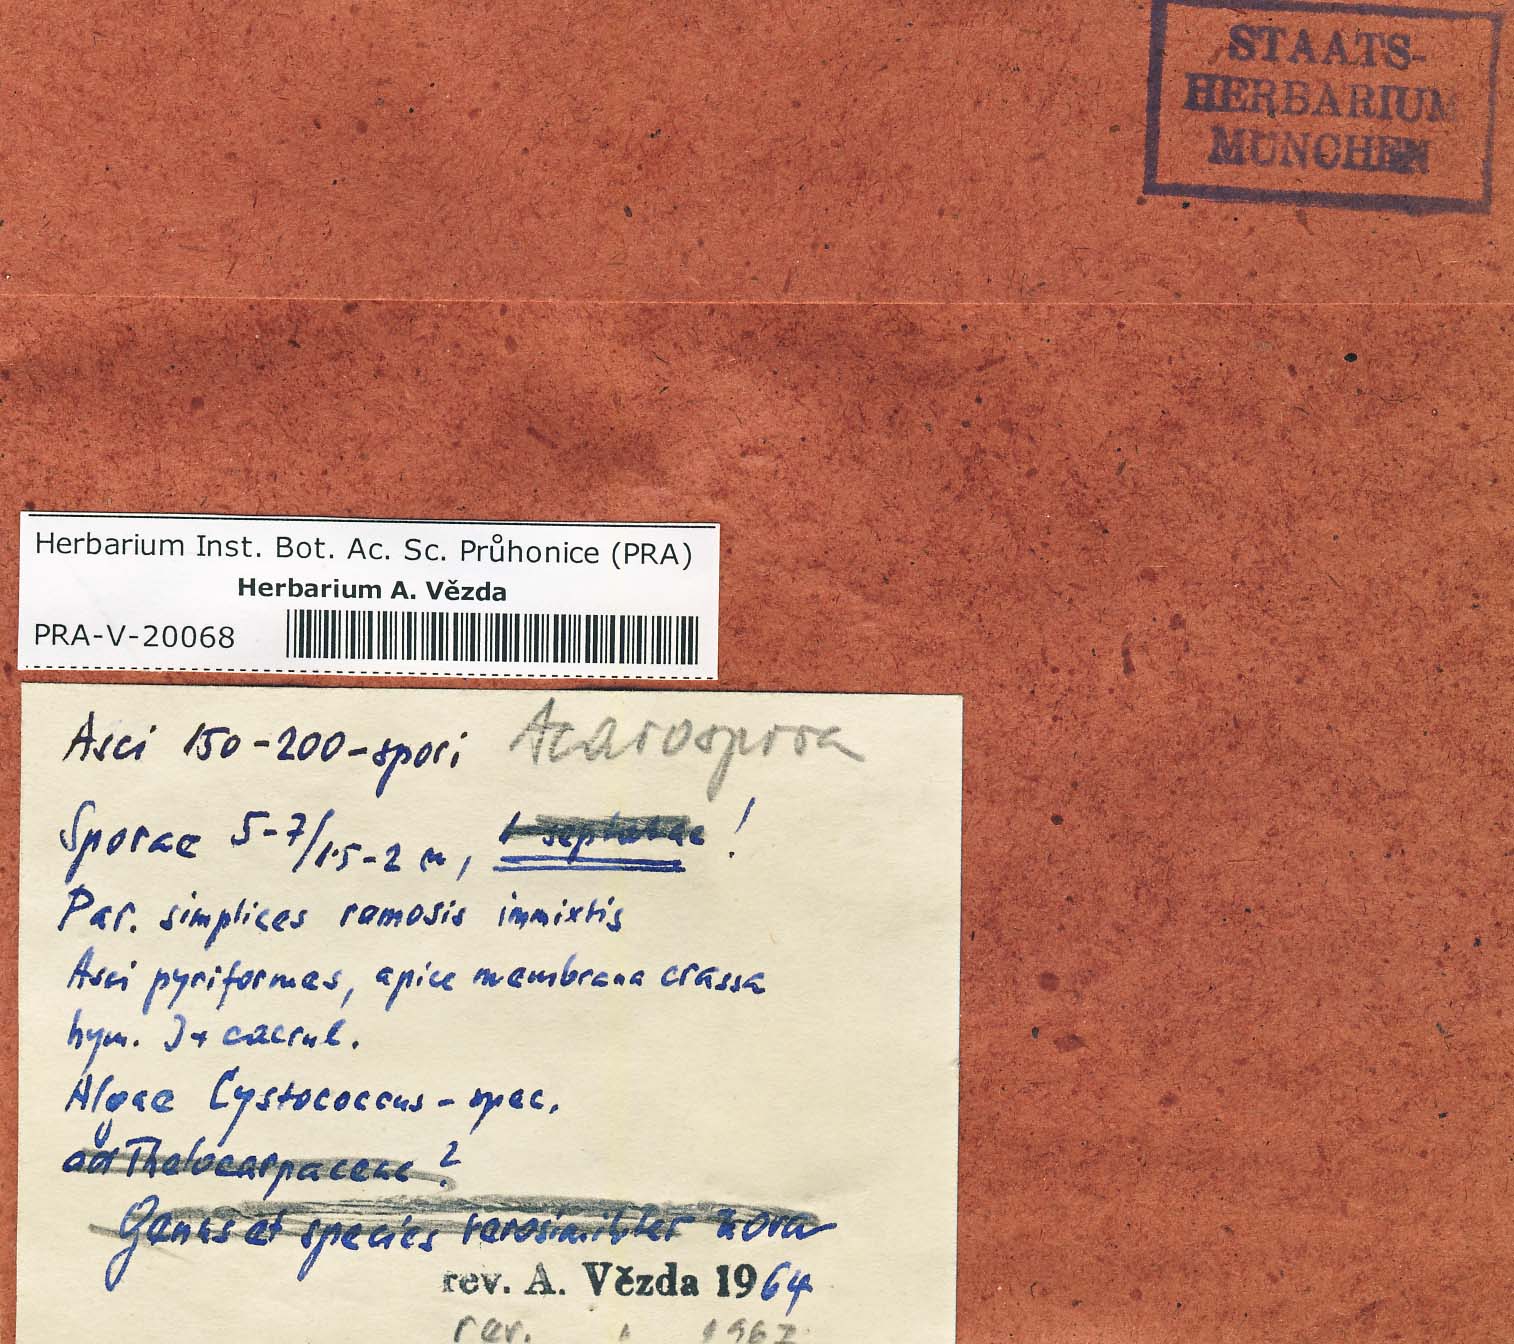 STAATS-
HERBARIUM
MÜNCHEN
Herbarium Inst. Bot. Ac. Sc. Průhonice (PRA)
Herbarium A. Vězda
PRA-V-20068
Asci 150-200-spori Acarospora
Sporae 5-7/1.5-2 µ, 1 septatae !
Par. simplices ramosis immixtis
Asci pyriformes, apice membrana crassa
hym. J+ caerul.
Algae Cystococcus-spec.
ad Thelocarpaceae ?
Genus et species verosimiliter nova
rev. A. Vězda 1964
rev. 1967